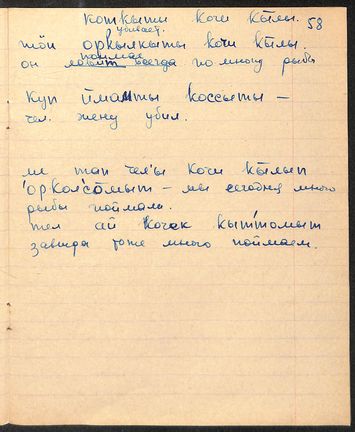 коткыти кочи кылы. 58
убивает.
тӧн оркылкыты кочи кылы.
поймал
он ловит всегда по многу рыбы
куп ӣматты коссыты –
чел. жену убил.
ме тап чел'ы кочи кылып
орколсомыт – мы сегодня много
рыбы поймали.
тел ай кочек кыттомыт
завтра тоже много поймаем.